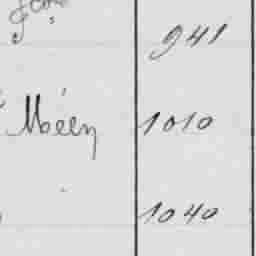 941
Méen 1010
1040